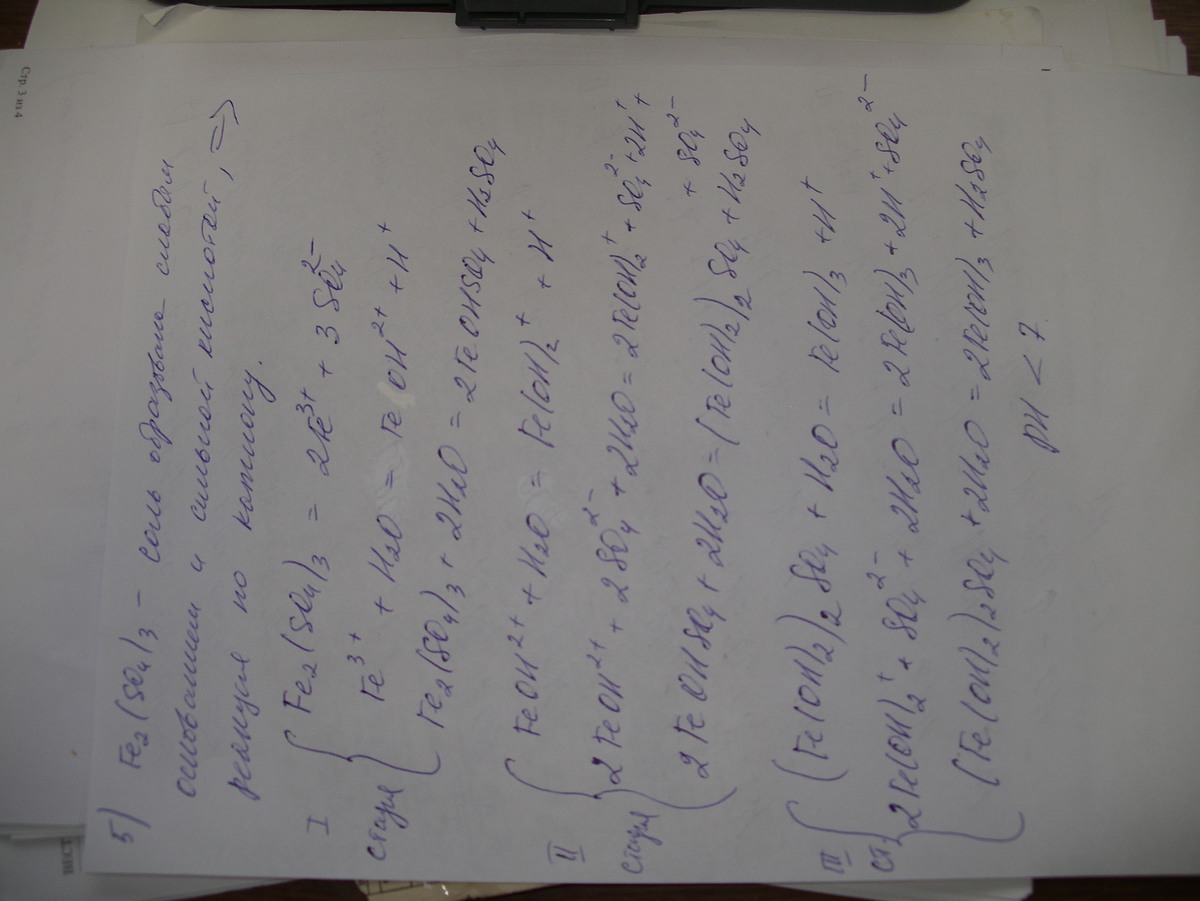 Стр. 3 из 4
5) Fe₂(SO₄)₃ – соль образована слабым
основанием и сильной кислотой, ⇒
реакция по катиону.
I стадия
Fe₂(SO₄)₃ = 2Fe³⁺ + 3SO₄²⁻
Fe³⁺ + H₂O = FeOH²⁺ + H⁺
Fe₂(SO₄)₃ + 2H₂O = 2FeOHSO₄ + H₂SO₄
II стадия
FeOH²⁺ + H₂O = Fe(OH)₂⁺ + H⁺
2FeOH²⁺ + 2SO₄²⁻ + 2H₂O = 2Fe(OH)₂⁺ + SO₄²⁻ + 2H⁺ +
+ SO₄²⁻
2FeOHSO₄ + 2H₂O = (Fe(OH)₂)₂SO₄ + H₂SO₄
III ст.
(Fe(OH)₂)₂SO₄ + H₂O = Fe(OH)₃ + H⁺
2Fe(OH)₂⁺ + SO₄²⁻ + 2H₂O = 2Fe(OH)₃ + 2H⁺ + SO₄²⁻
(Fe(OH)₂)₂SO₄ + 2H₂O = 2Fe(OH)₃ + H₂SO₄
pH < 7
ВЕСТ